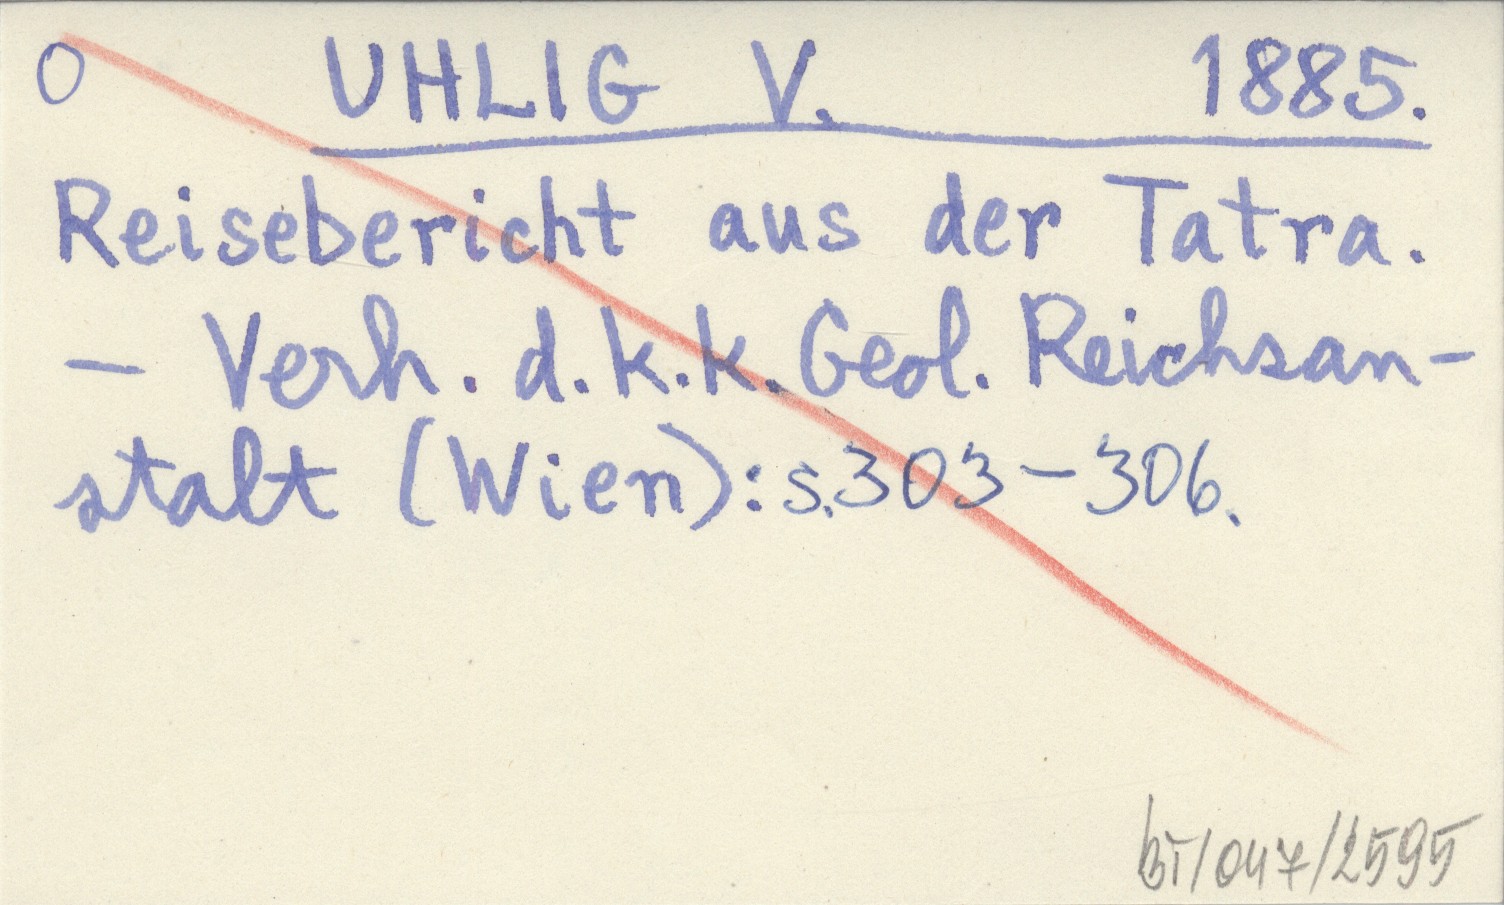 O UHLIG V. 1885.
Reisebericht aus der Tatra.
- Verh. d. k. k. Geol. Reichsan-
stalt (Wien): s. 303-306.
BT/047/2595